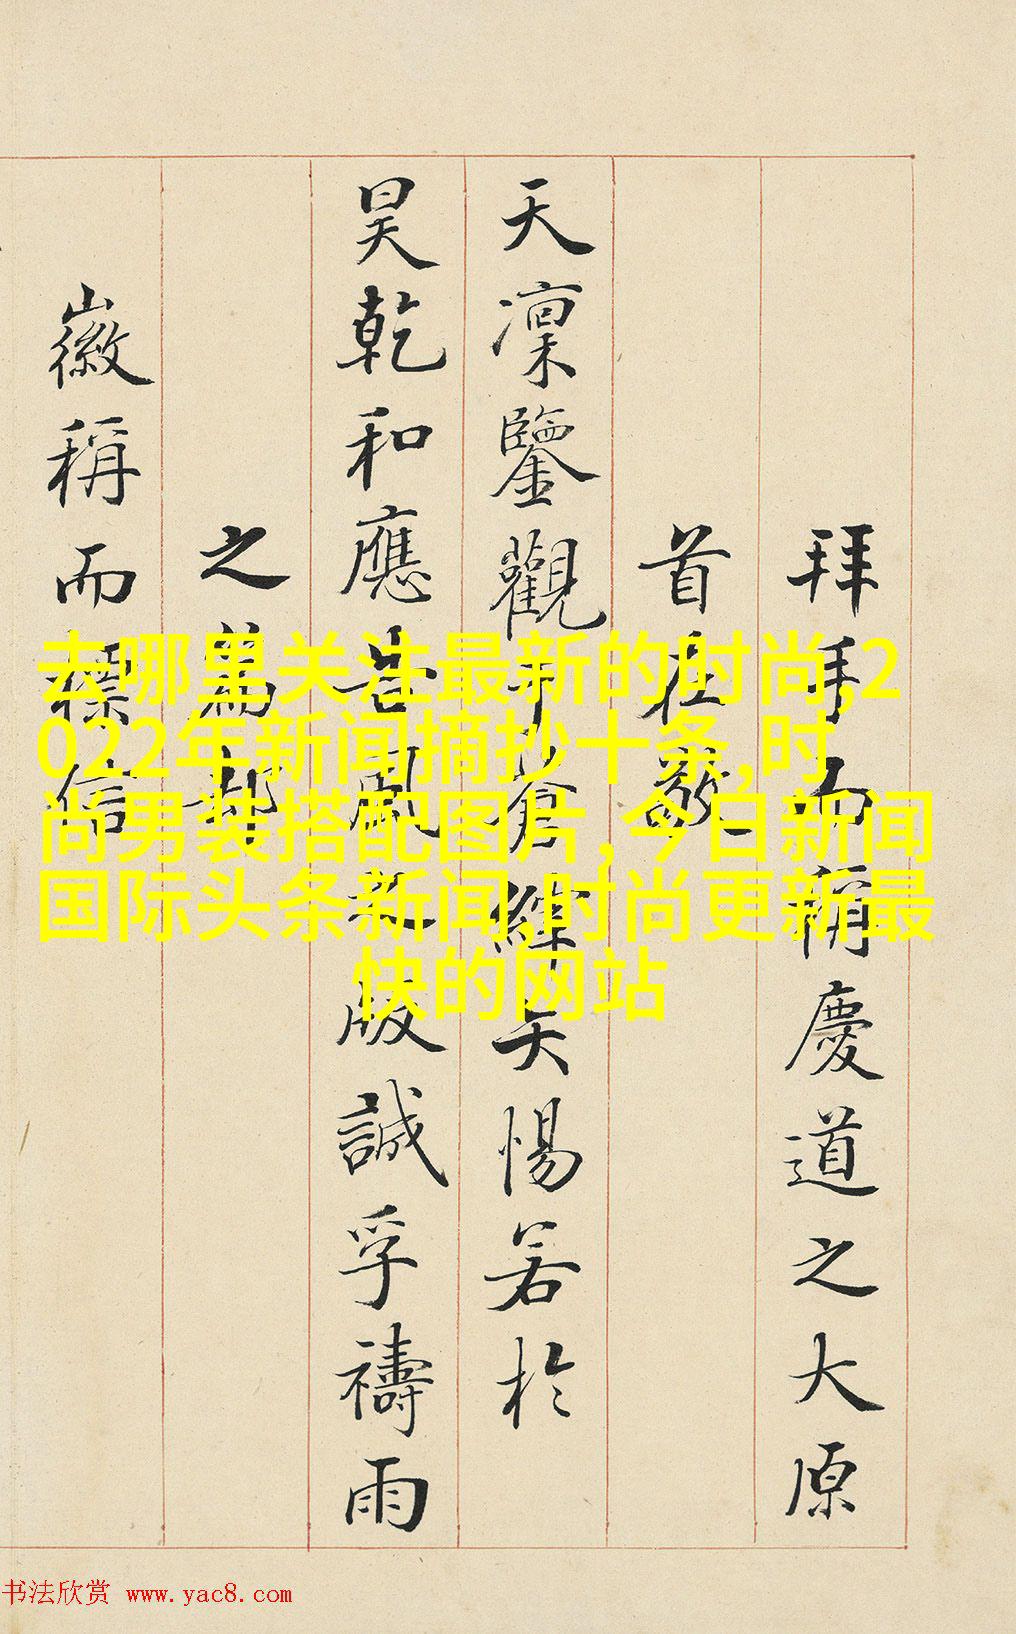 拜拜而稱慶道之大原
首在敬
天凜鑒觀於緯天惕若於
昊乾和應風版誠孚禱雨
之為
徽稱而標信
去哪里关注最新的时尚,2
022年新闻摘抄十条,时
尚男装搭配图片, 今日新闻
国际头条新闻,时尚更新最
快的网站
书法欣赏 www.yac8.com